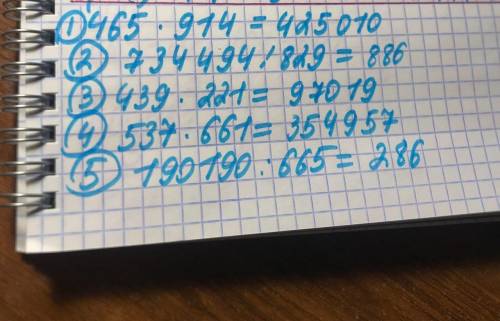 ① 465 · 914 = 425010
② 734494 : 829 = 886
③ 439 · 221 = 97019
④ 537 · 661 = 354957
⑤ 190190 : 665 = 286